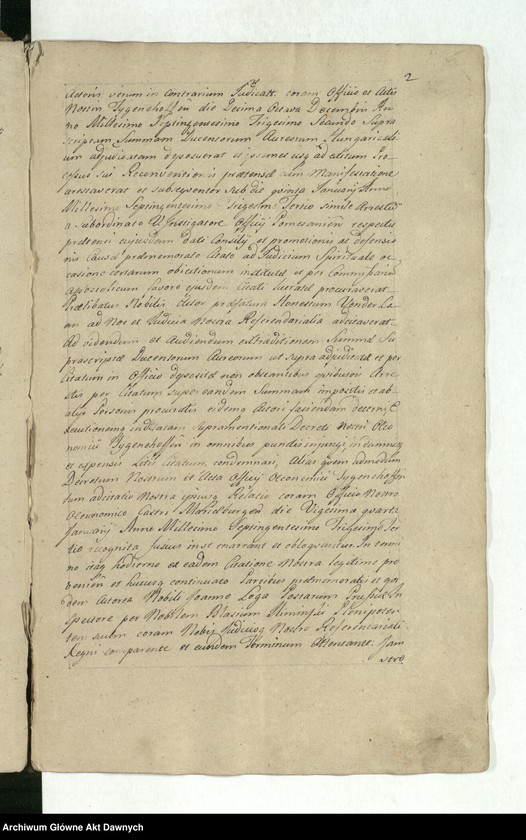 2
Actoris verum in contrarium Judicatt. coram Officio et Actis
Nostris Tygenhoffen die Decima Octava Decembris An-
no Millesimo Septingentesimo Trigesimo Secundo Supra
scriptam Summam Ducentorum Aureorum Hungaricali-
um adjudicatam deposuerat et
cessus sui Reconventionis prætensæ cum Manifestatione
arestaverat et subsequenter sub die quinta Januarij Anno
Millesimo Septingentesimo Trigesimo Tertio simile Arrestum
a subordinato Instigatore Officij Pomesaniem respectu
prætensi cujusdam dati Consilij et promotionis ac defensio
nis Causæ præmemorato Citato ad Judicium Spirituale oc
casione certarum obiectionum institutæ et per Commissarium
Apostolicum favore ejusdem Citati procuraverat
Prælibatus Nobilis Actor præfatum Honestum Vonder La-
an ad Nos et Judicia Nostra Referendarialia adcitaverat
Ad videndum et Audiendum extraditionem Summæ Su
prascriptæ Ducentorum Aureorum ut supra adjudicatæ et per
Citatum in Officio depositæ non obstantibus quibusvis Arre-
stis per Citatum super eandem Summam impositis et ab
alijs Personis procuratis eidemq Actori faciendam decerni E
xecutionemq in Bassam Supramentionati Decreti Nostri Oeco
nomici Tygenhoffen in omnibus punctis injungi, in damnis
et expensis Litis Citatum, condemnari, Alias quem admodum
Decretum Nostrum et Acta Officij Oeconomici Tygenhoffen
tum adcitatio Nostra ipsiusq Relatio coram Officio Nostro
Oeconomico Castri Marieburgen die Vigesima quarta
Januarij Anno Millesimo Septingentesimo Trigesimo Ter
tio recognita fusius in se enarrant et obloquuntur. In termi
no itaq hodierno ex eadem Citatione Nostra legitime pro
venien et hucusq continuato Partibus præmemoratis et qui
dem Actorea Nobili Joanne Loga Postarum Prussiæ In
spectore per Nobilem Blasium Plenipoten
tem suum coram Nobis Judicioq Nostro Referendariali
Regni comparente et eundem Terminum Attentante. Jam
vero
Archiwum Główne Akt Dawnych